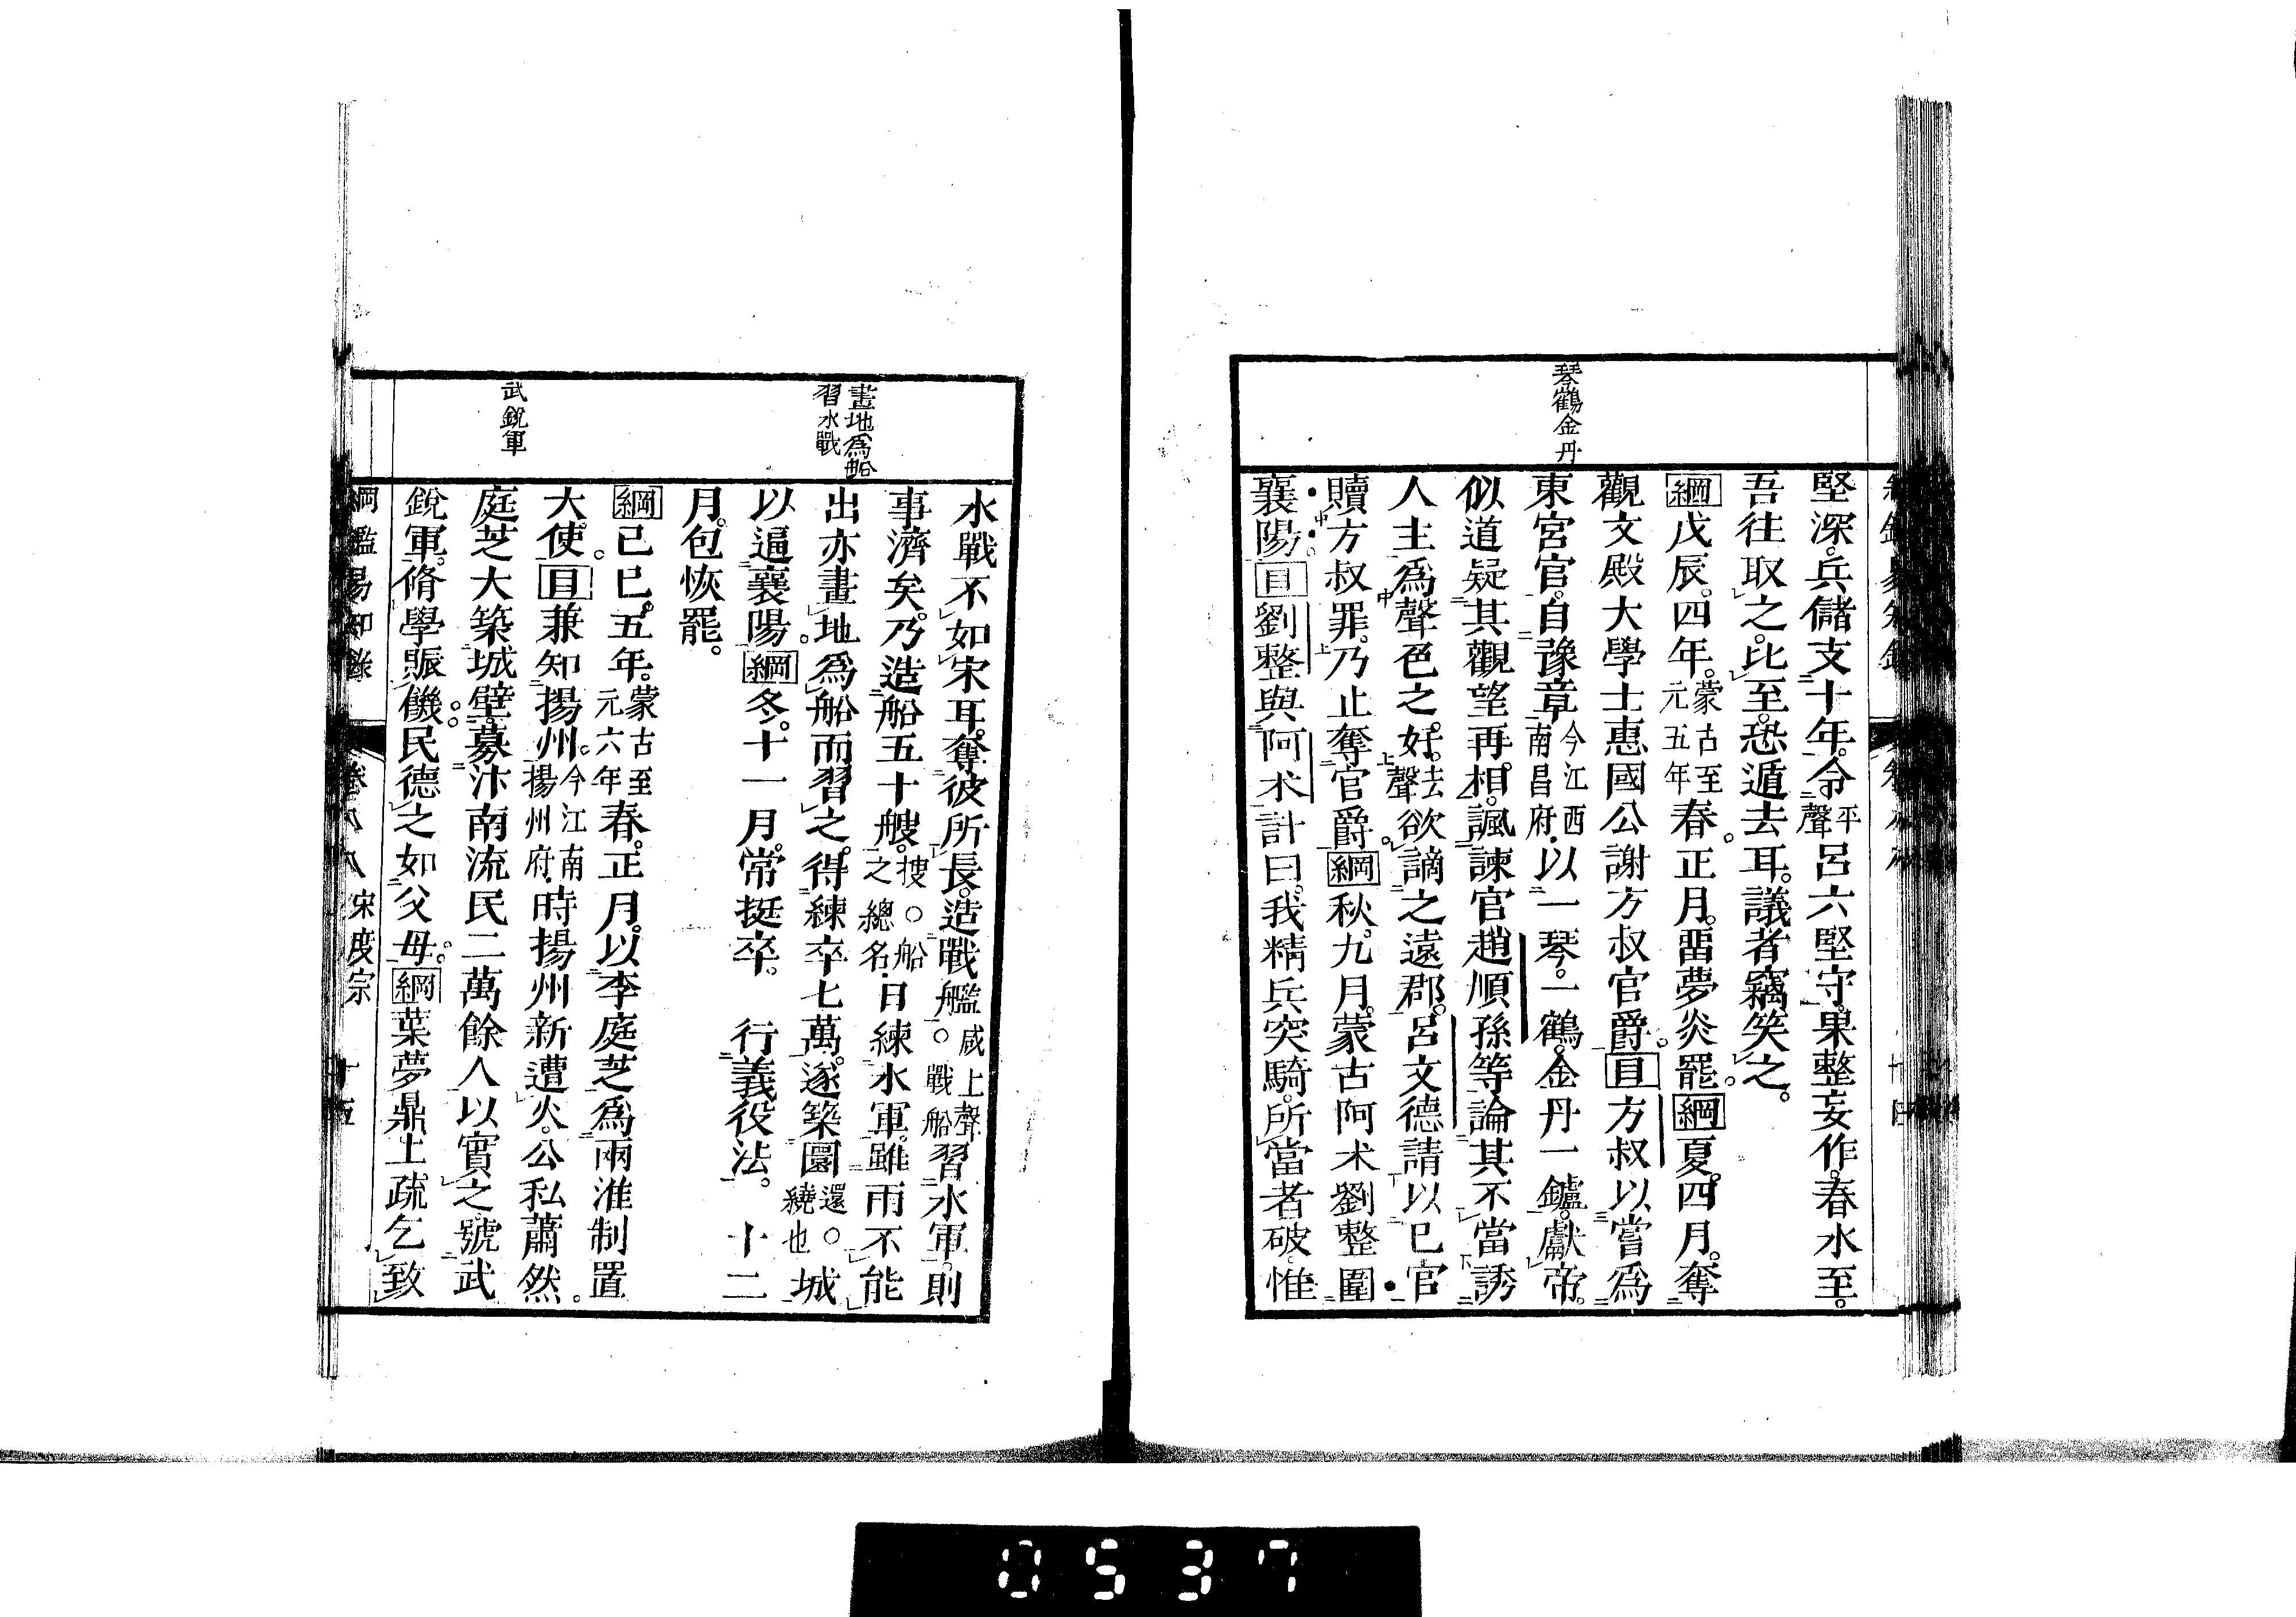 琴鶴金丹
堅深。兵儲支十年。令平聲呂六堅守。果整妄作。春水至。
吾往取之。比至。恐遁去耳。議者竊笑之。
綱戊辰。四年。蒙古至元五年春。正月。畱夢炎罷。綱夏。四月。奪
觀文殿大學士惠國公謝方叔官爵。目方叔以嘗爲
東宮官。自豫章今江西南昌府以一琴。一鶴。金丹一鑪。獻帝。
似道疑其觀望再相。諷諫官趙順孫等論其不當誘
人主爲聲色之好。去聲欲謫之遠郡。呂文德請以已官
贖方叔罪。乃止奪官爵綱秋。九月。蒙古阿朮劉整圍
襄陽。目劉整與阿朮計曰。我精兵突騎。所當者破。惟
畫地爲船
習水戰
武銳軍
水戰不如宋耳。奪彼所長。造戰艦。咸上聲。戰船習水軍。則
事濟矣。乃造船五十艘。搜。○船之總名日練水軍。雖雨不能
出亦畫地爲船而習之。得練卒七萬。遂築圜還。○繞也城
以逼襄陽。綱冬。十一月。常挺卒。 行義役法。 十二
月。包恢罷。
綱已巳。五年。蒙古至元六年春。正月。以李庭芝爲兩淮制置
大使。目兼知揚州。今江南揚州府時揚州新遭火。公私蕭然。
庭芝大築城壁。募汴南流民二萬餘人以實之。號武
銳軍。脩學賑饑。民德之如父母。綱葉夢鼎上疏乞致
綱鑑易知錄 卷八八 宋度宗 十五